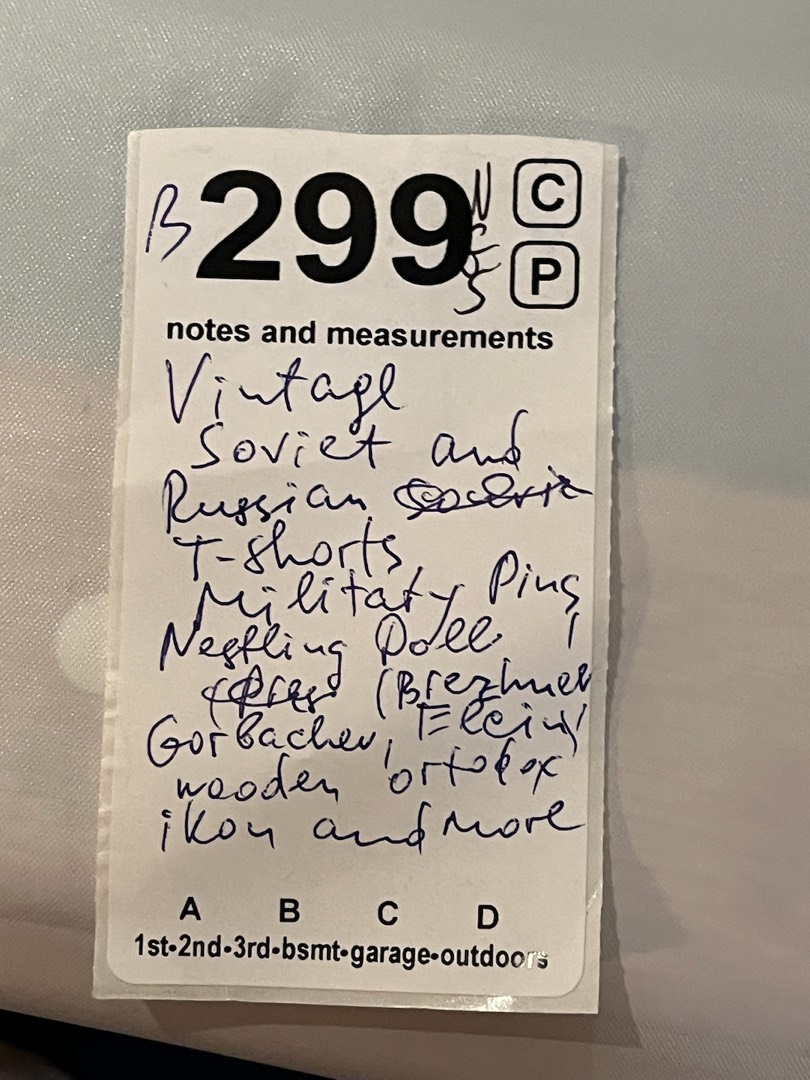 B 299 C
P
notes and measurements
Vintage
Soviet and
Russian
T-shorts
Military Pins
Nestling Doll
(Brezhnev
Gorbachev, Elcin)
wooden ortodox
ikon and more
A B C D
1st•2nd•3rd•bsmt•garage•outdoors